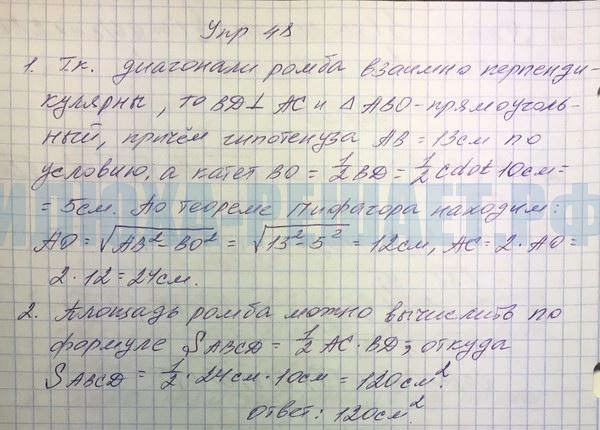 Упр 48
1. Т.к. диагонали ромба взаимно перпенди-
кулярны, то BD⊥ AC и △ ABO-прямоуголь-
ный, причём гипотенуза AB = 13см по
условию, а катет BO = 1/2 BD = 1/2 cdot 10см=
= 5см. По теореме Пифагора находим:
AO = √(AB² - BO²) = √(13² - 5²) = 12см, AC = 2 · AO =
2 · 12 = 24см.
2. Площадь ромба можно вычислить по
формуле S ABCD = 1/2 AC · BD, откуда
S ABCD = 1/2 · 24см · 10см = 120см².
ответ: 120см².